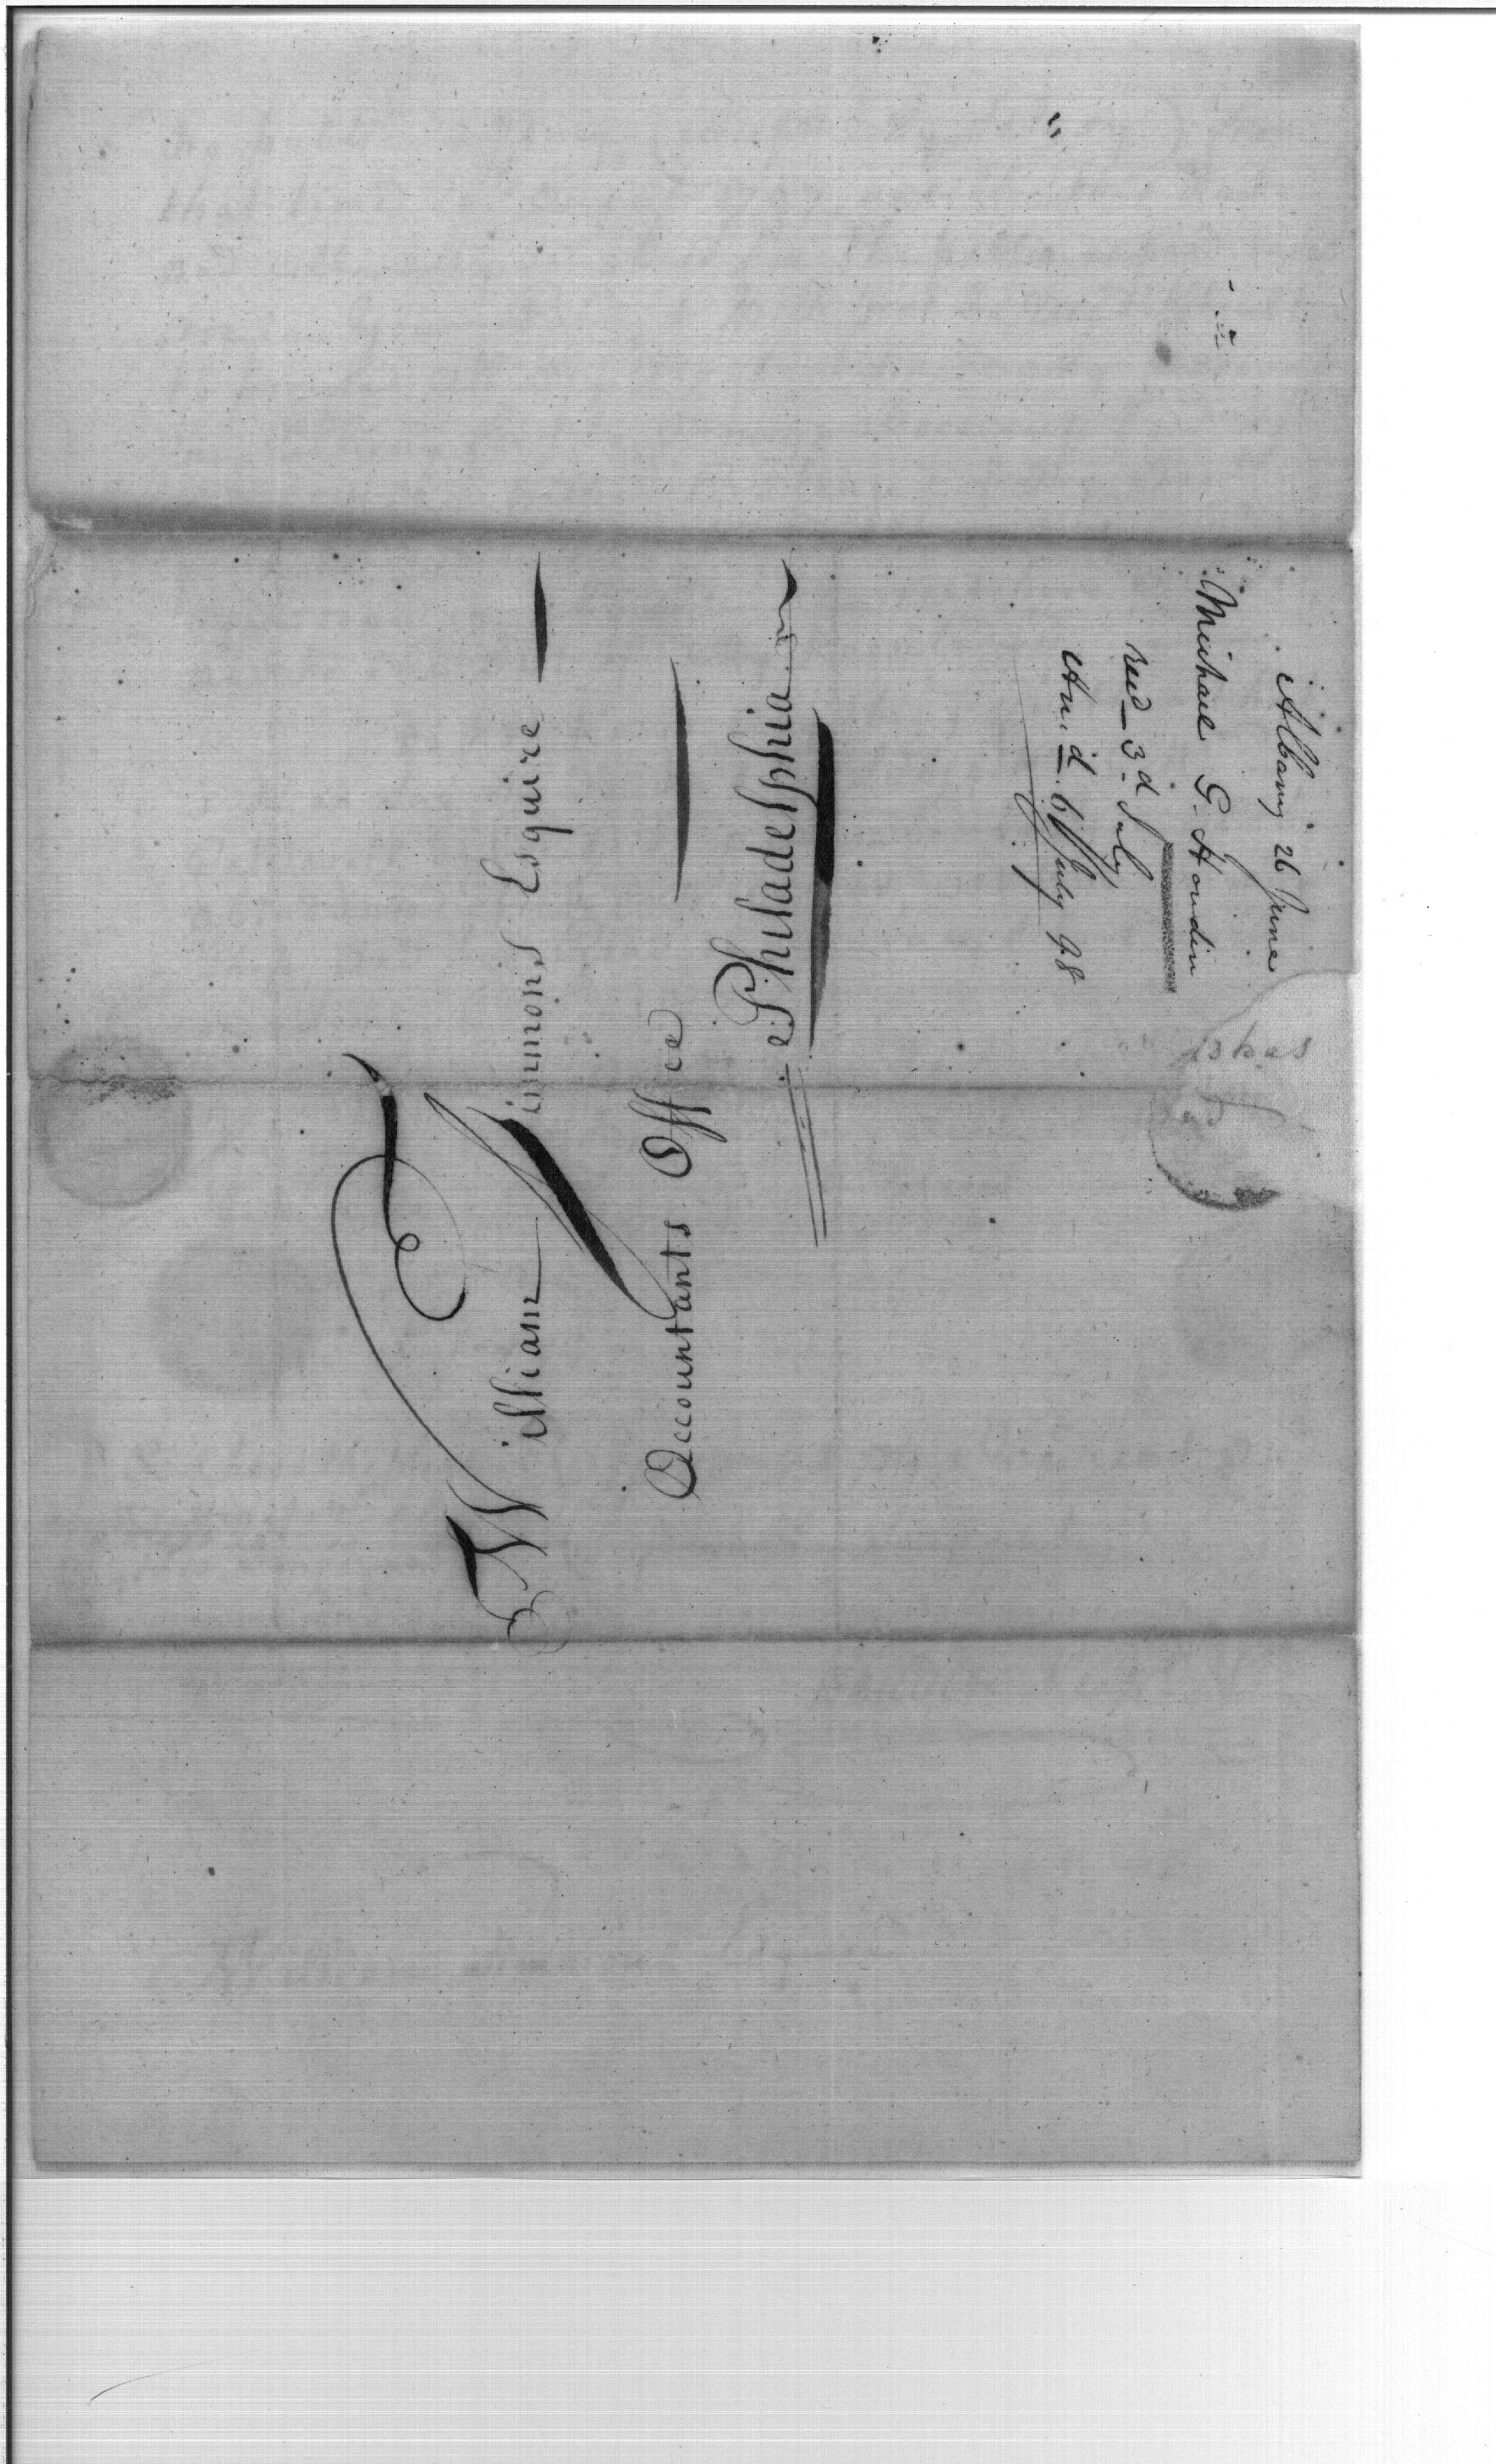 William Simmons Esquire
Accountants Office
Philadelphia
Albany 26 June
Michael G. Houdin
recd 3d July
An.d 6 July 98